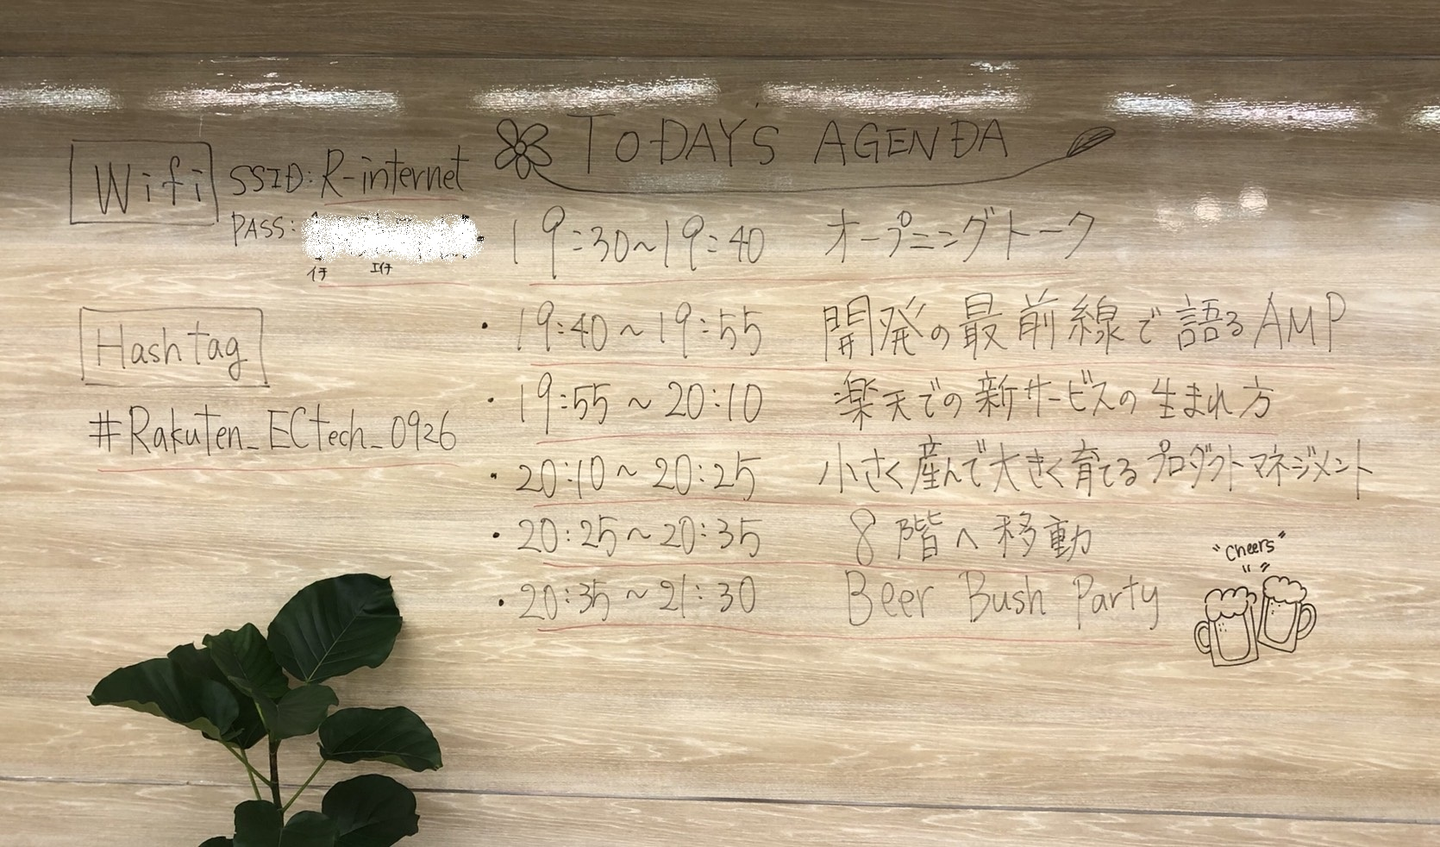 TODAYS AGENDA
Wifi SSID: R-internet
PASS:
イチ エイチ
Hashtag
#Rakuten_ECtech_0926
・19:30〜19:40 オープニングトーク
・19:40〜19:55 開発の最前線で語るAMP
・19:55〜20:10 楽天での新サービスの生まれ方
・20:10〜20:25 小さく産んで大きく育てるプロダクトマネジメント
・20:25〜20:35 8階へ移動
・20:35〜21:30 Beer Bush Party
"Cheers"